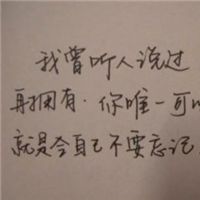 我曾听人说过
再拥有．你唯一可以
就是令自己不要忘记